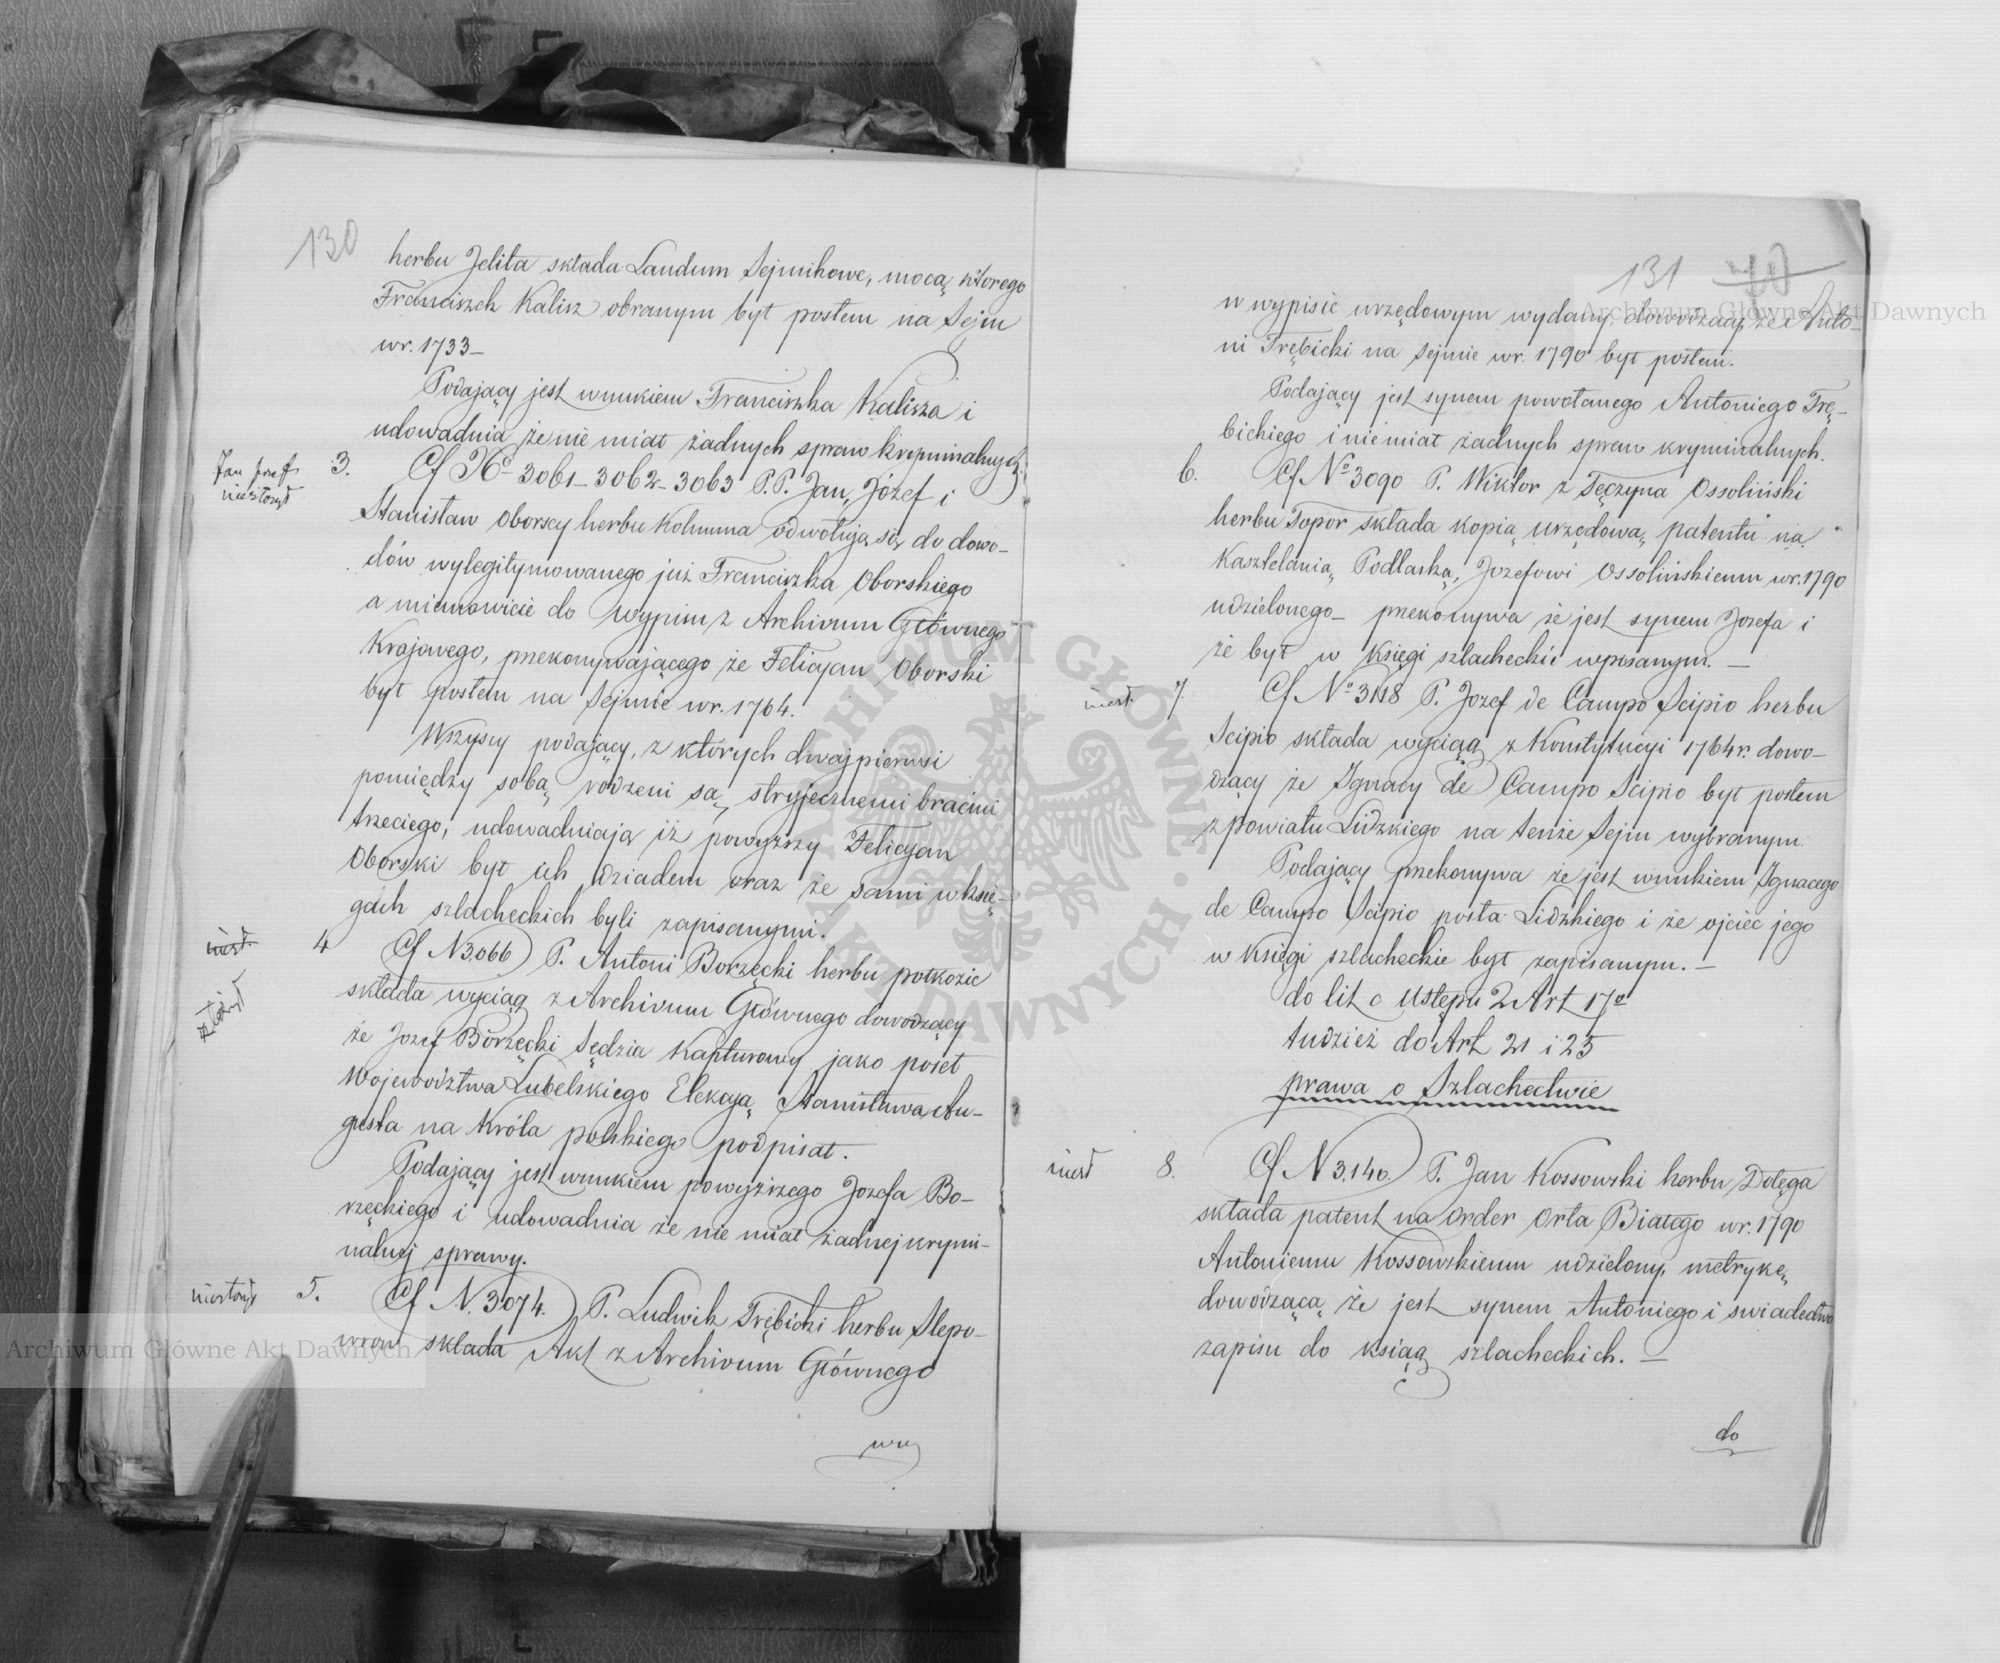 130
herbu Jelita składa Laudum Sejmikowe, mocą którego
Franciszek Kalisz obranym był posłem na Sejm
w r. 1733 –
Podający jest wnukiem Franciszka Kalisza i
udowadnia że nie miał żadnych spraw kryminalnych.
Jan Józef
niezłożył
3. Cf No 3061 – 3062 – 3063 P.P. Jan, Józef i
Stanisław Oborscy herbu Kolumna odwołują się do dowo-
dów wylegitymowanego już Franciszka Oborskiego
a mianowicie do wypisu z Archivum Głównego
Krajowego, przekonywającego że Felicyan Oborski
był posłem na Sejmie w r. 1764.
Wszyscy podający, z których dwaj pierwsi
pomiędzy sobą rodzeni są, stryjecznemi braćmi
trzeciego, udowadniają iż powyższy Felicyan
Oborski był ich dziadem oraz że sami w księ-
gach szlacheckich byli zapisanymi.
złożył
4 Cf N 3,066 P. Antoni Borzęcki herbu Półkozic
składa wyciąg z Archivum Głównego dowodzący
że Jozef Borzęcki Sędzia Kapturowy jako poseł
Województwa Lubelskiego Elekcją Stanisława Au-
gusta na Króla polskiego podpisał.
Podający jest wnukiem powyższego Jozefa Bo-
rzęckiego i udowadnia że nie miał żadnej krymi-
nalnej sprawy.
niezłożył
5. Cf N. 3074. P. Ludwik Trębicki herbu Slepo-
wron składa Akt z Archivum Głównego
w wy
131
w wypisie urzędowym wydany, dowodzący, że Anto-
ni Trębicki na Sejmie w r. 1790 był posłem.
Podający jest synem powołanego Antoniego Trę-
bickiego i nie miał żadnych spraw kryminalnych.
6. Cf No 3090 P. Wiktor z Tęczyna Ossoliński
herbu Topor składa kopią urzędową patentu na
Kasztelanią Podlaską, Jozefowi Ossolińskiemu w r. 1790
udzielonego – przekonywa że jest synem Jozefa i
że był w księgi szlacheckie wpisanym. –
niezł.
7. Cf No 3118 P. Jozef de Campo Scipio herbu
Scipio składa wyciąg z Konstytucyi 1764 r. dowo-
dzący że Ignacy de Campo Scipio był posłem
z powiatu Lidzkiego na tenże Sejm wybranym.
Podający przekonywa że jest wnukiem Ignacego
de Campo Scipio posła Lidzkiego i że ojciec jego
w księgi szlacheckie był zapisanym. –
do lit c Ustępu 2 Art 17o
tudzież do Art. 21 i 25
prawa o Szlachectwie
niezł
8. Cf N 3,140. P. Jan Kossowski herbu Dołęga
składa patent na Order Orła Białego w r. 1790
Antoniemu Kossowskiemu udzielony, metrykę,
dowodzącą że jest synem Antoniego i swiadectwo
zapisu do ksiąg szlacheckich. –
do
Archiwum Główne Akt Dawnych
Archiwum Główne Akt Dawnych
ARCHIWUM GŁÓWNE AKT DAWNYCH